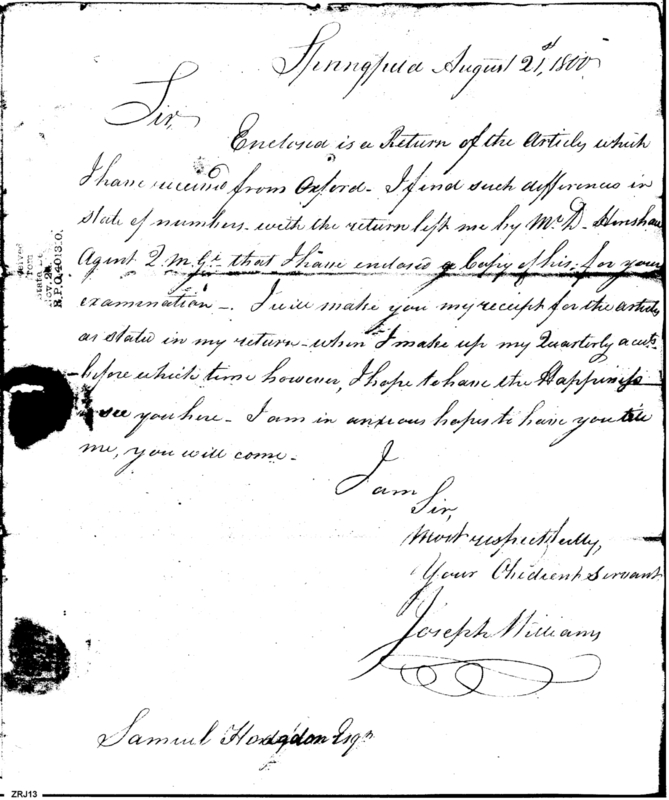 Springfield August 21st, 1800.
Sir,
Enclosed is a Return of the Articles which
I have received from Oxford - I find such differences in
state of numbers - with the return left me by Mr. D. Henshaw
Agent Q. M. Gl. that I have enclosed a Copy of his, for your
examination -. I will make you my receipt for the articles
as stated in my return - when I make up my Quarterly accts.
before which time however, I hope to have the Happiness
to see you here - I am in anxious hopes to have you tell
me, you will come -
I am
Sir,
Most respectfully,
Your Obedient Servant
Joseph Williams
Samuel Hodgdon Esqr.
from
Nov. 2
B.P.O. 4013.0.
ZRJ13